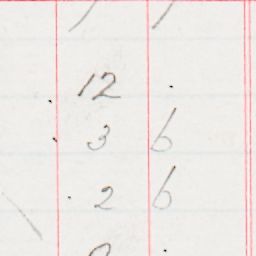 12 .
3 6
2 6